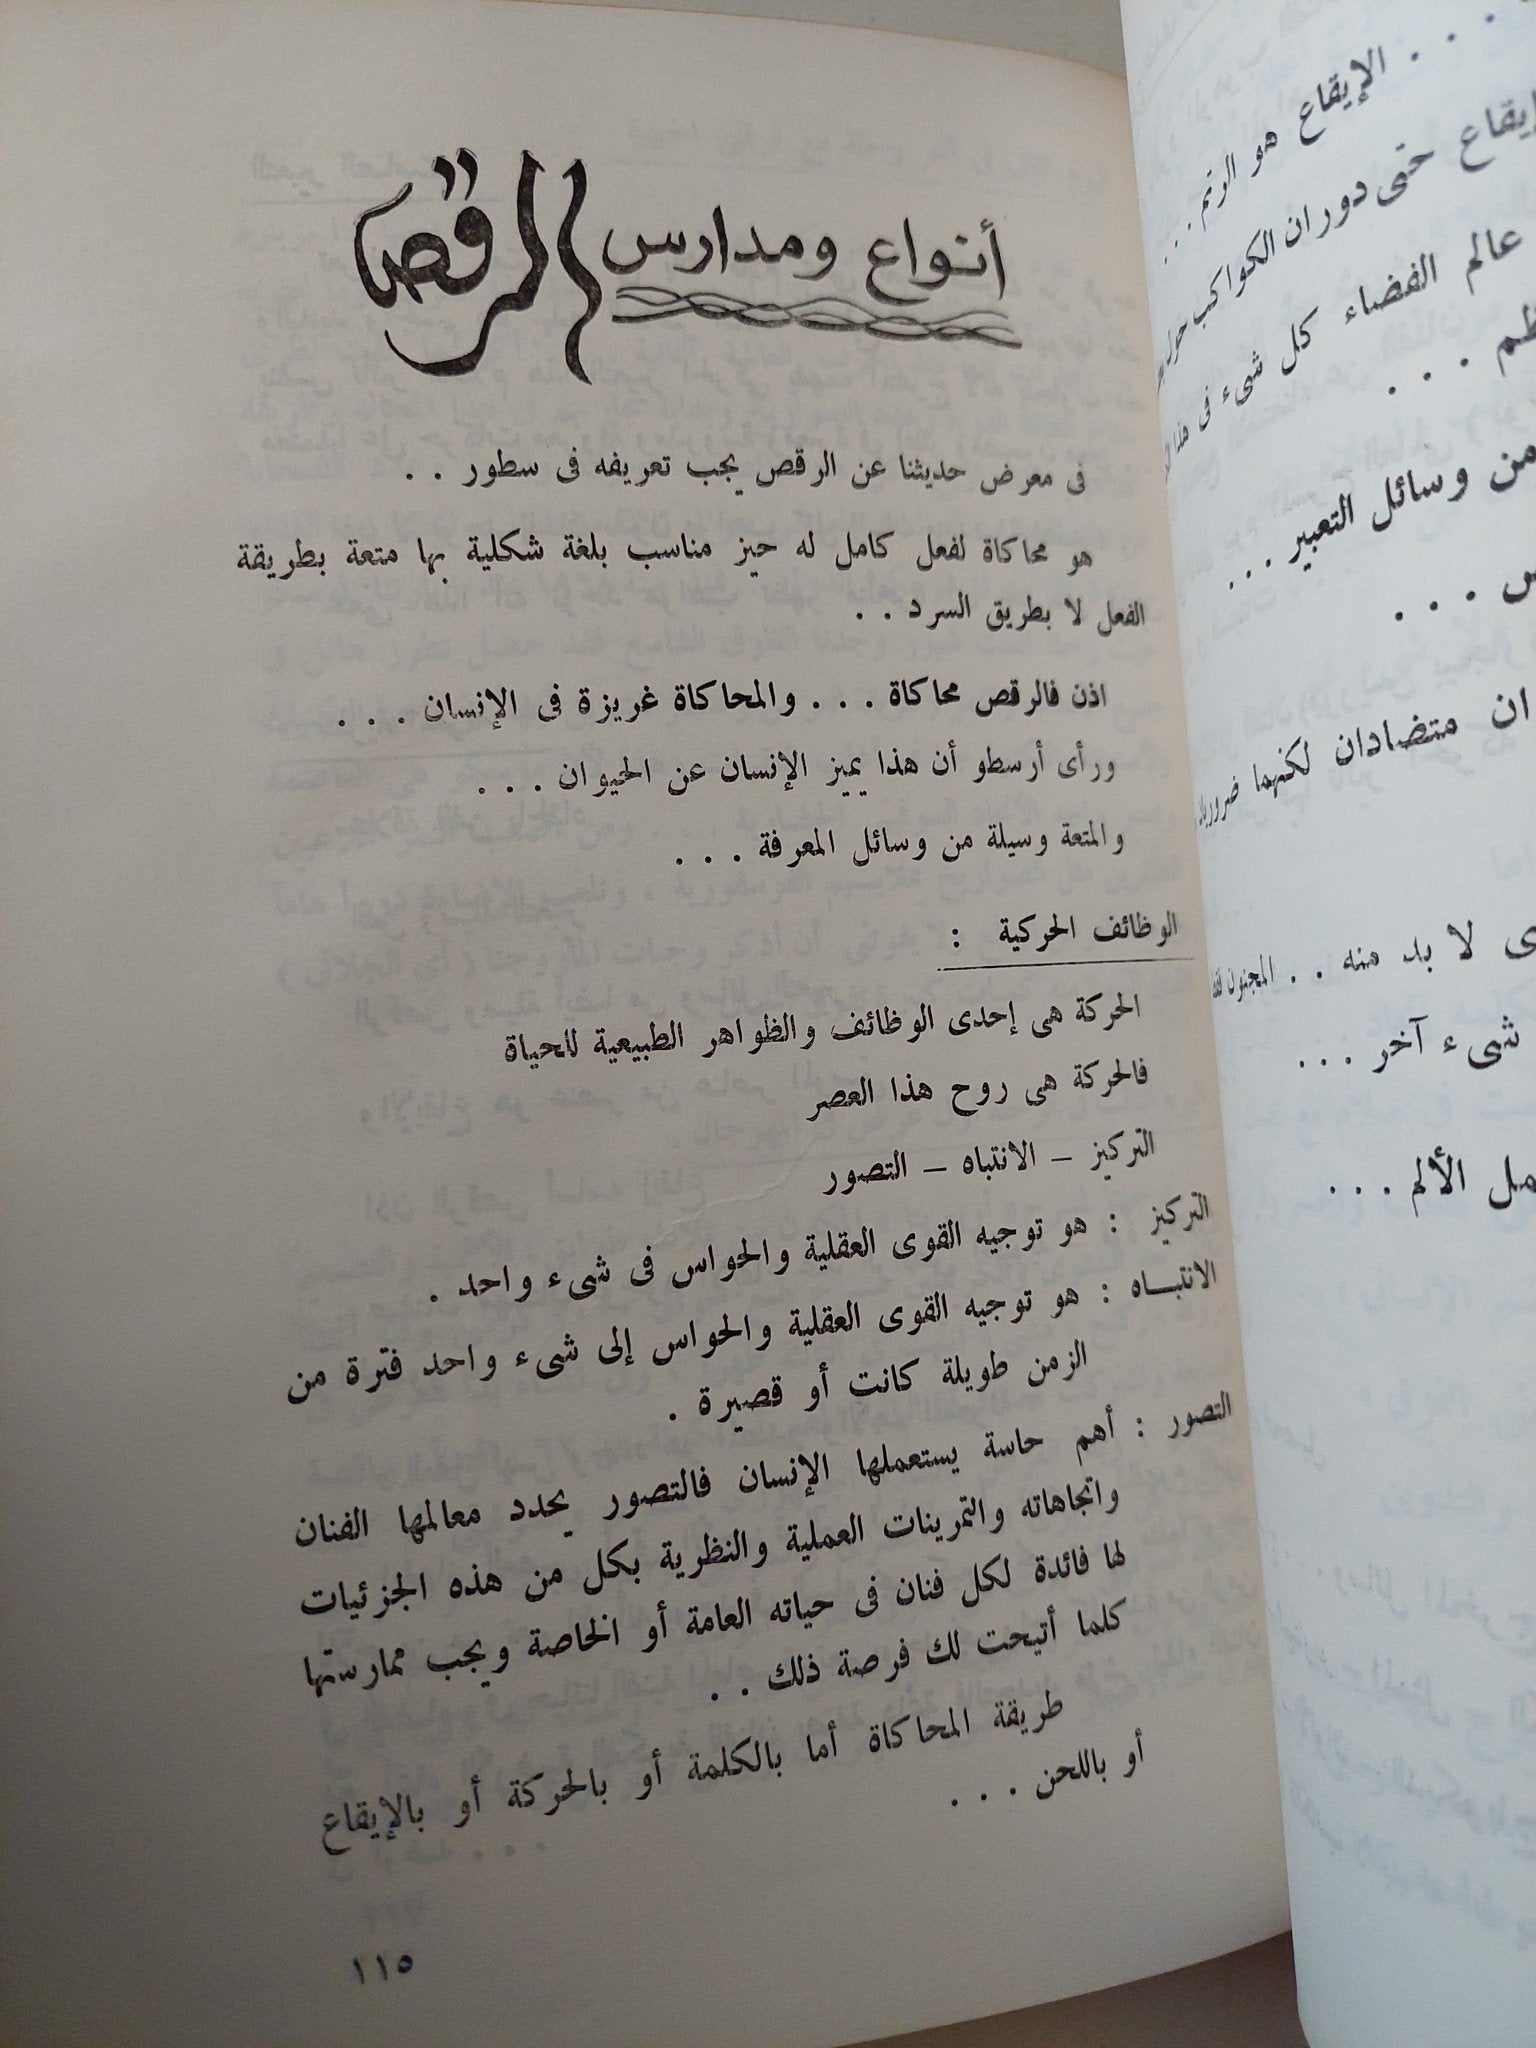 . . . الإيقاع هو الرتم . . .
حتى دوران الكواكب
عالم الفضاء كل شىء فى هذا
. . .
من وسائل التعبير . . .
. . .
متضادان لكنهما
لا بد منه . . المجنون
شىء آخر . . .
الألم . . .
أنواع ومدارس الرقص
فى معرض حديثنا عن الرقص يجب تعريفه فى سطور . .
هو محاكاة لفعل كامل له حيز مناسب بلغة شكلية بها متعة بطريقة
الفعل لا بطريق السرد . .
اذن فالرقص محاكاة . . . والمحاكاة غريزة فى الإنسان . . .
ورأى أرسطو أن هذا يميز الإنسان عن الحيوان . . .
والمتعة وسيلة من وسائل المعرفة . . .
الوظائف الحركية :
الحركة هى إحدى الوظائف والظواهر الطبيعية للحياة
فالحركة هى روح هذا العصر
التركيز – الانتباه – التصور
التركيز : هو توجيه القوى العقلية والحواس فى شىء واحد .
الانتبـاه : هو توجيه القوى العقلية والحواس إلى شىء واحد فترة من
الزمن طويلة كانت أو قصيرة .
التصور : أهم حاسة يستعملها الإنسان فالتصور يحدد معالمها الفنان
واتجاهاته والتمرينات العملية والنظرية بكل من هذه الجزئيات
لها فائدة لكل فنان فى حياته العامة أو الخاصة ويجب ممارستها
كلما أتيحت لك فرصة ذلك . .
طريقة المحاكاة أما بالكلمة أو بالحركة أو بالإيقاع
أو باللحن . . .
١١٥